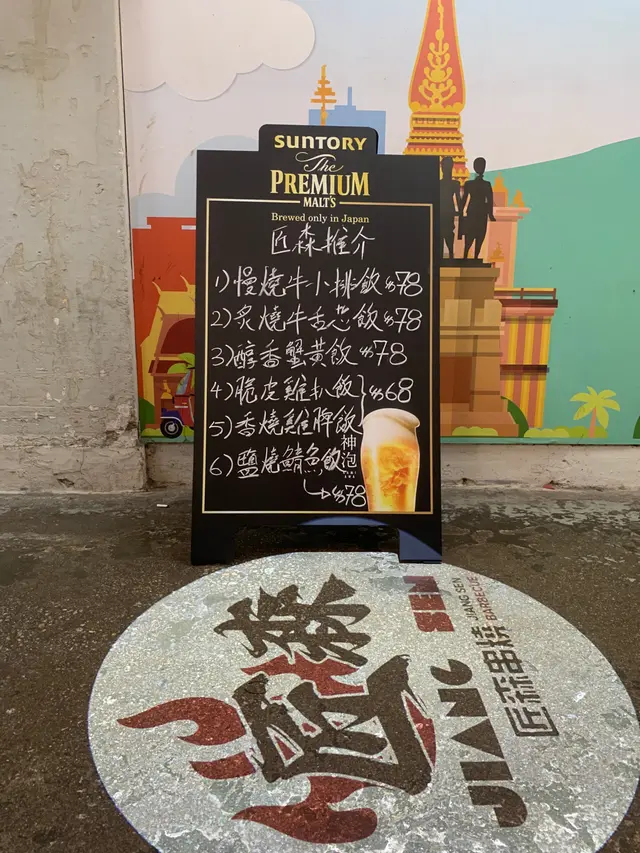 SUNTORY
The
PREMIUM
MALT'S
Brewed only in Japan
匠森推介
1)慢燒牛小排飲$78
2)炙燒牛舌芯飲$78
3)醇香蟹黃飲$78
4)脆皮雞扒飲
$68
5)香燒雞髀飲
6)鹽燒鯖魚飲
$78
神泡
匠森
JIANG SEN
JIANG SEN
BARBECUE
匠森串燒